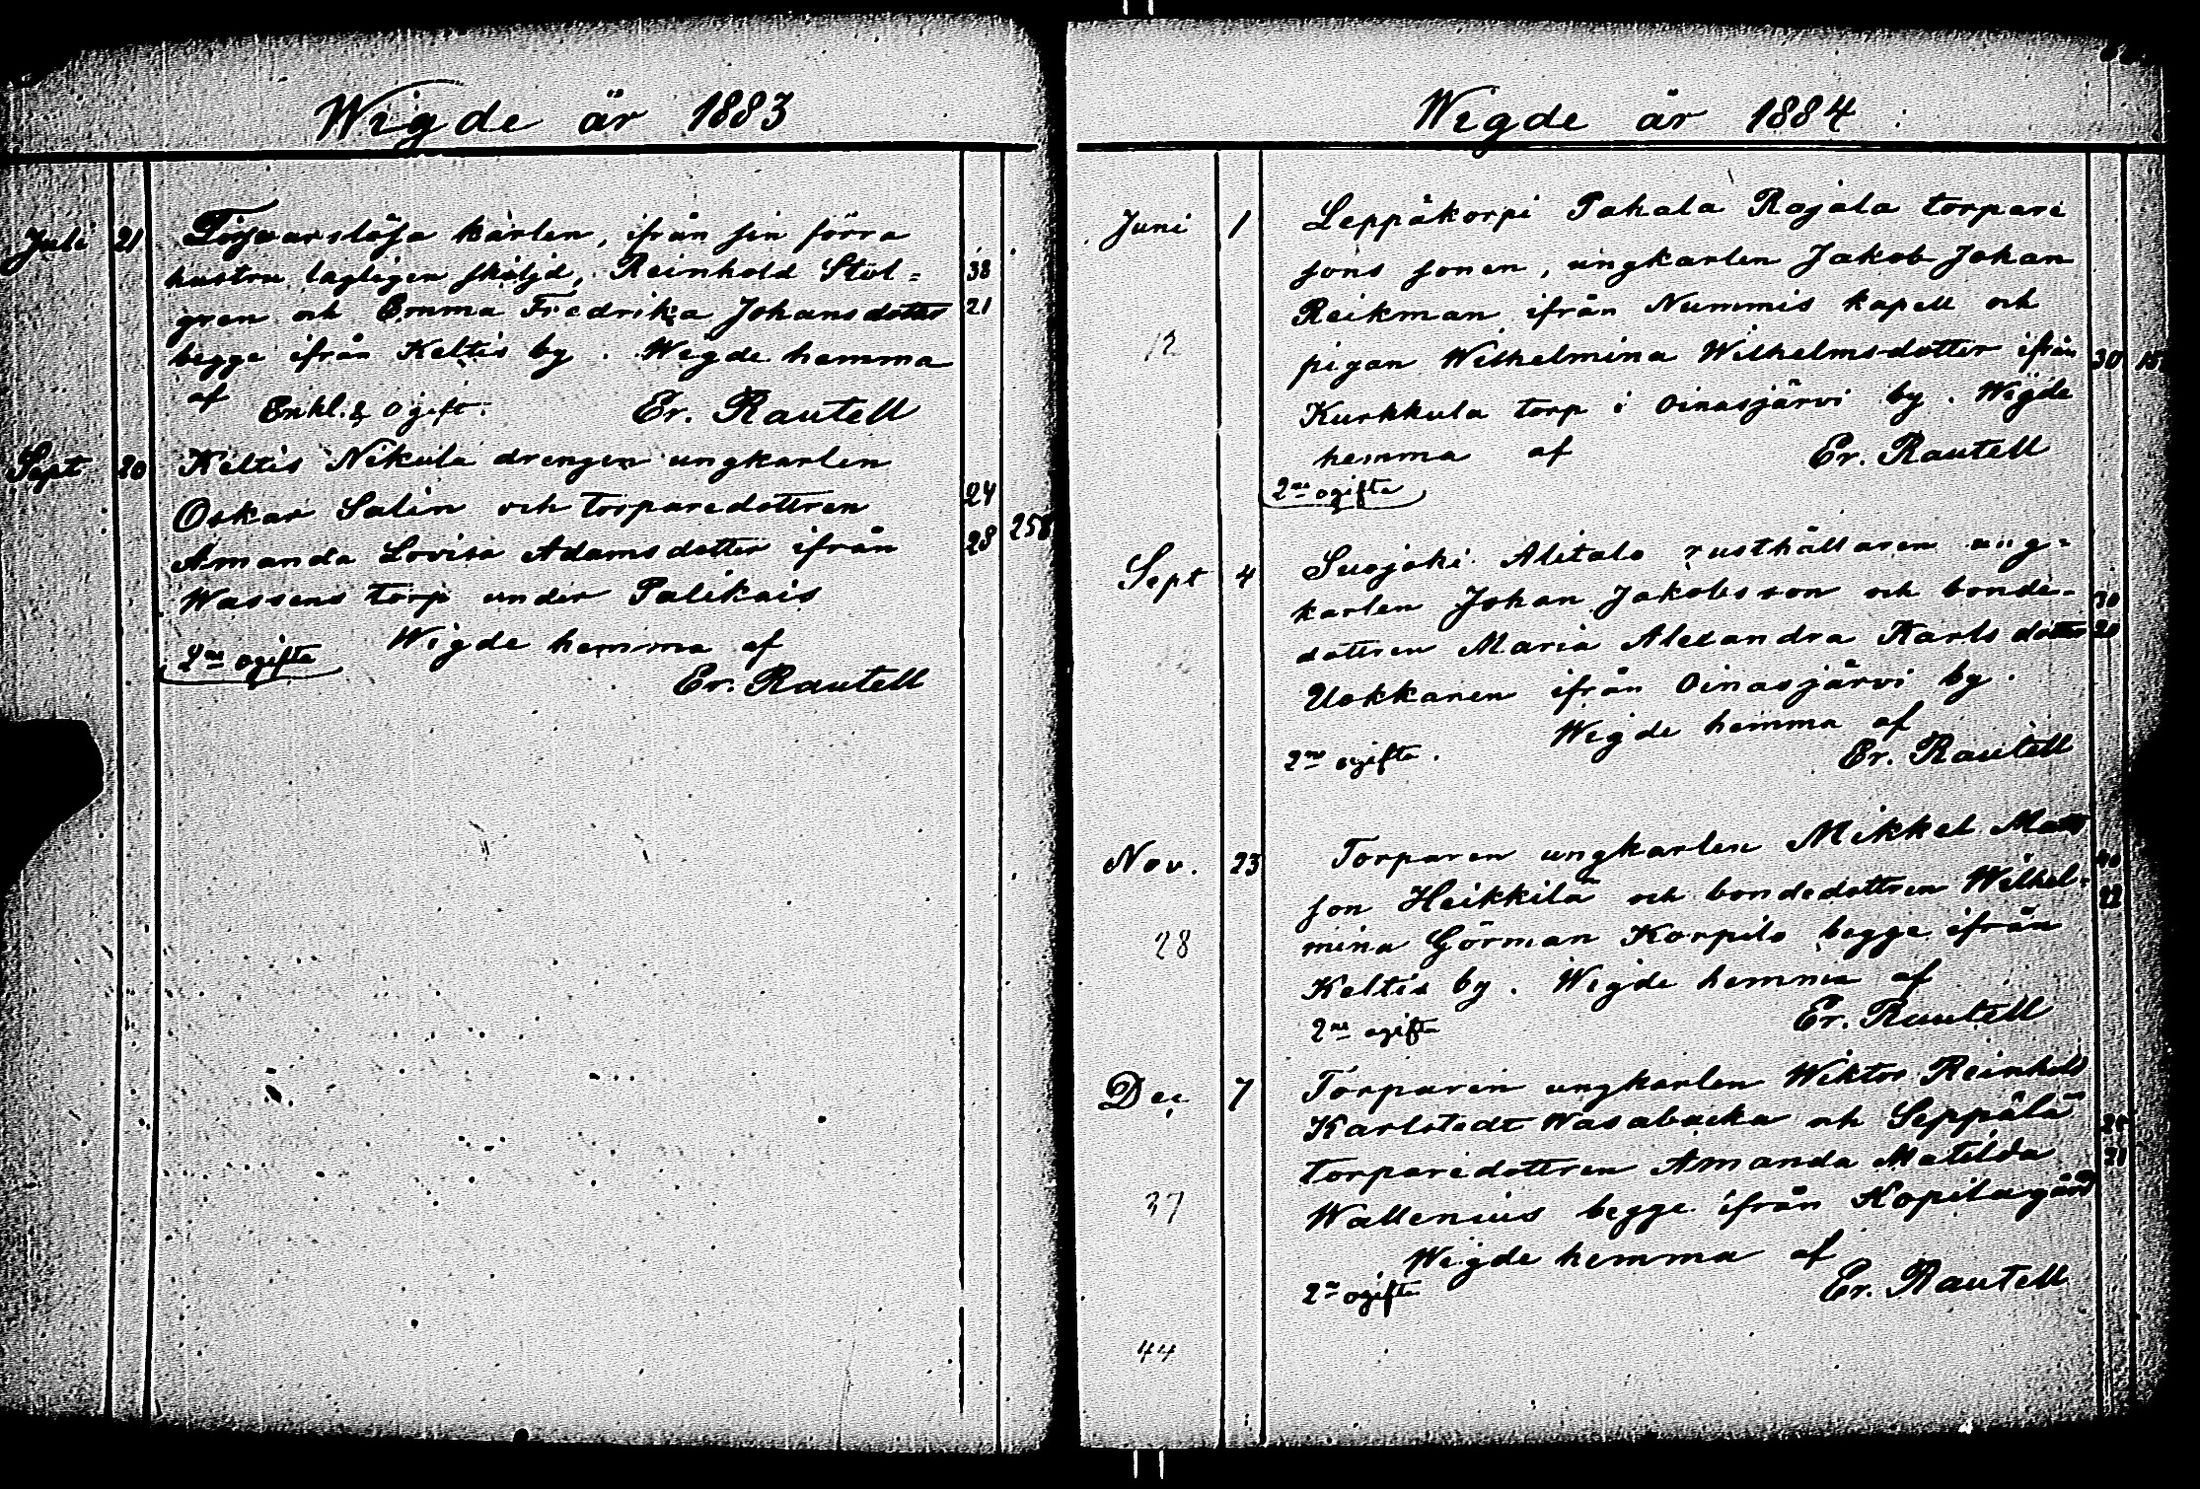 Wigde år 1883
Juli 21 Försvarslösa karlen, ifrån sin förra
hustru lagligen skiljd, Reinhold Stöl= 38
gren och Emma Fredrika Johansdotter 21
begge ifrån Keltis by. Wigde hemma
af Enkl. & ogift. Er. Rautell
Sept 20 Keltis Nikula drengen ungkarlen
Oskar Salin och torparedottren 24
Amanda Lovisa Adamsdotter ifrån 28 258
Wassens torp under Palikais
2ne ogifta Wigde hemma af
Er. Rautell
Wigde år 1884
Juni 1 Leppäkorpi Pahala Rajala torpare
sons sonen, ungkarlen Jakob Johan
Reikman ifrån Nummis kapell och
12 pigan Wilhelmina Wilhelmsdotter ifrån 30
Kurkkula torp i Oinasjärvi by. Wigde
hemma af Er. Rautell
2ne ogifta
Sept 4 Suojoki Alitalo rusthållaren ung-
karlen Johan Jakobsson och bonde- 30
dottren Maria Alexandra Karlsdotter 20
Uokkanen ifrån Oinasjärvi by.
Wigde hemma af
2ne ogifta. Er. Rautell
Nov. 23 Torparen ungkarlen Mikkel Mats
son Heikkilä och bondedottren Wilhel- 22
28 mina Görman Korpilo begge ifrån
Keltis by. Wigde hemma af
2ne ogifta Er. Rautell
Dec 7 Torparen ungkarlen Wiktor Reinhold
Karlstedt Wasabacka och Seppälä
torparedottren Amanda Matilda 21
37 Wallenius begge ifrån Kopilagård
Wigde hemma af
2ne ogifta Er. Rautell
44